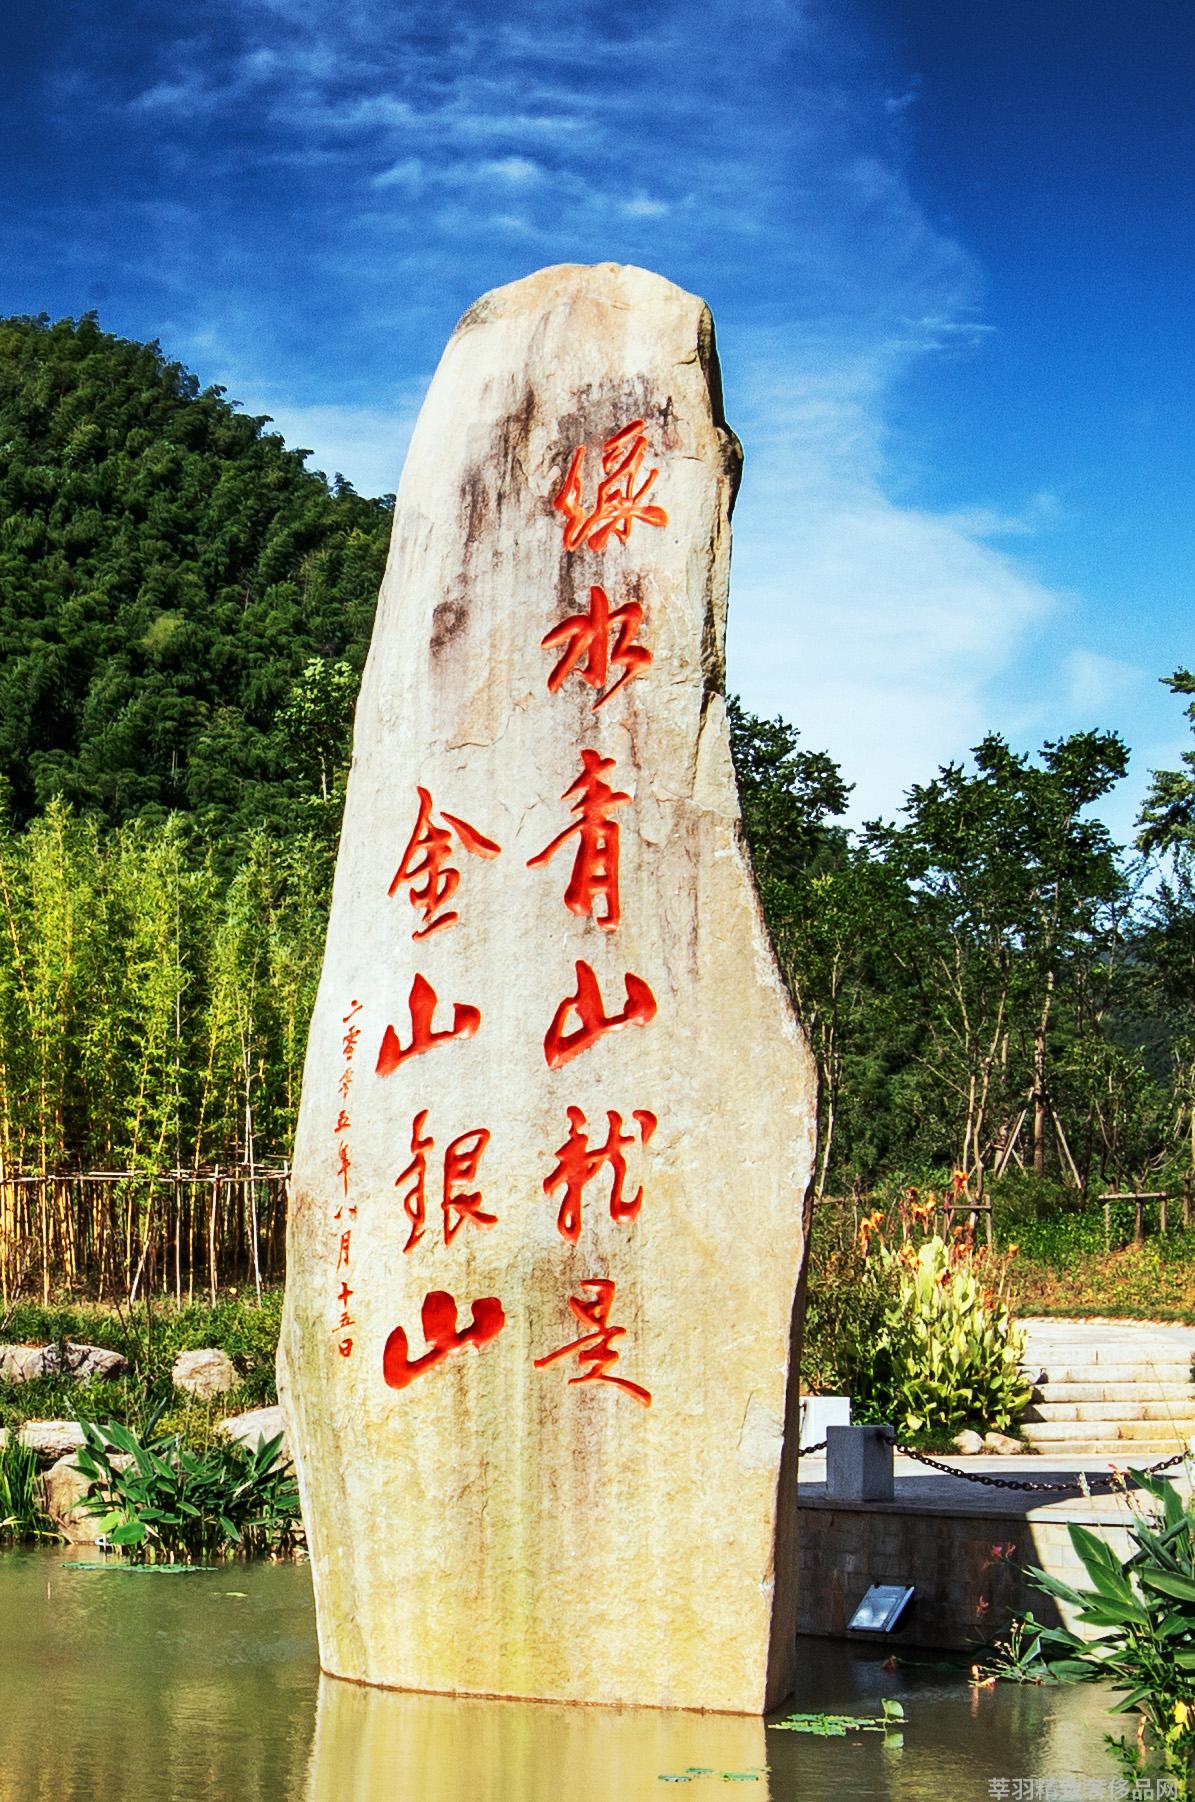 绿水青山就是
金山银山
二零零五年八月十五日
莘羽精致奢侈品网